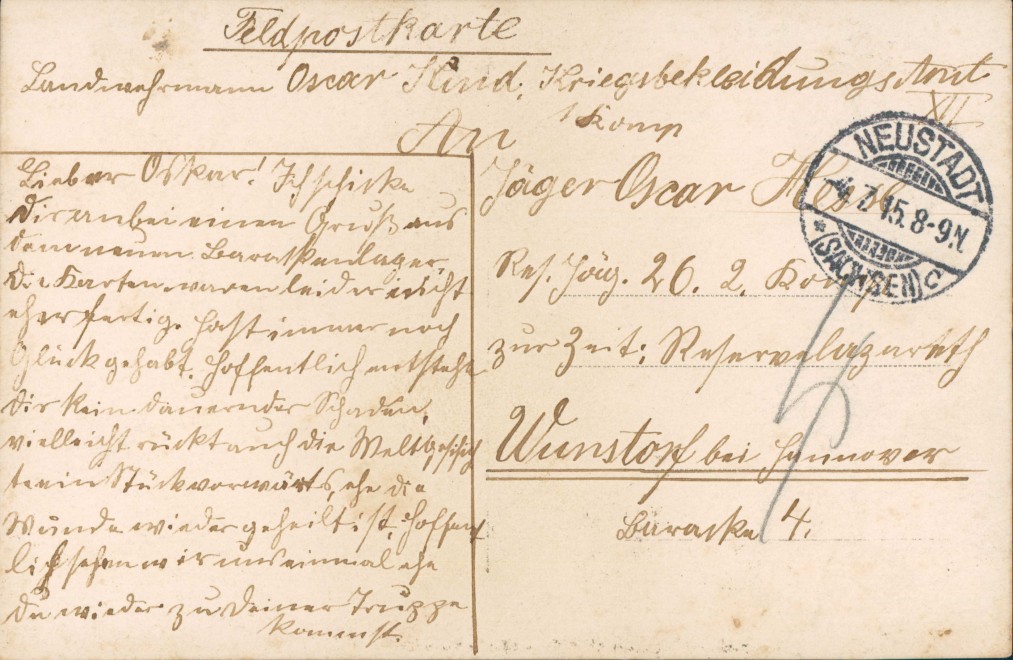 Feldpostkarte
Landwehrmann Oscar Kind, Kriegsbekleidungsamt
XII
1 Komp
An
Lieber Oskar! Ich schicke
Dir anbei einen Gruß aus
dem neuen Barackenlager,
die Karten waren leider nicht
eher fertig. Hast immer noch
Glück gehabt. Hoffentlich entsteht
dir kein dauernder Schaden,
vielleicht rückt auch die Weltgeschich
te ein Stück vorwärts, ehe die
Wunde wieder geheilt ist. Hoffent
lich sehen wir uns einmal ehe
du wieder zu deiner Truppe
kommst.
Jäger Oscar
Res. Jäg. 26. 2. Komp
zur Zeit: Reservelazareth
Wunstorf bei Hannover
Baracke 4.
NEUSTADT
4.7.15. 8-9N.
* (SACHSEN) c